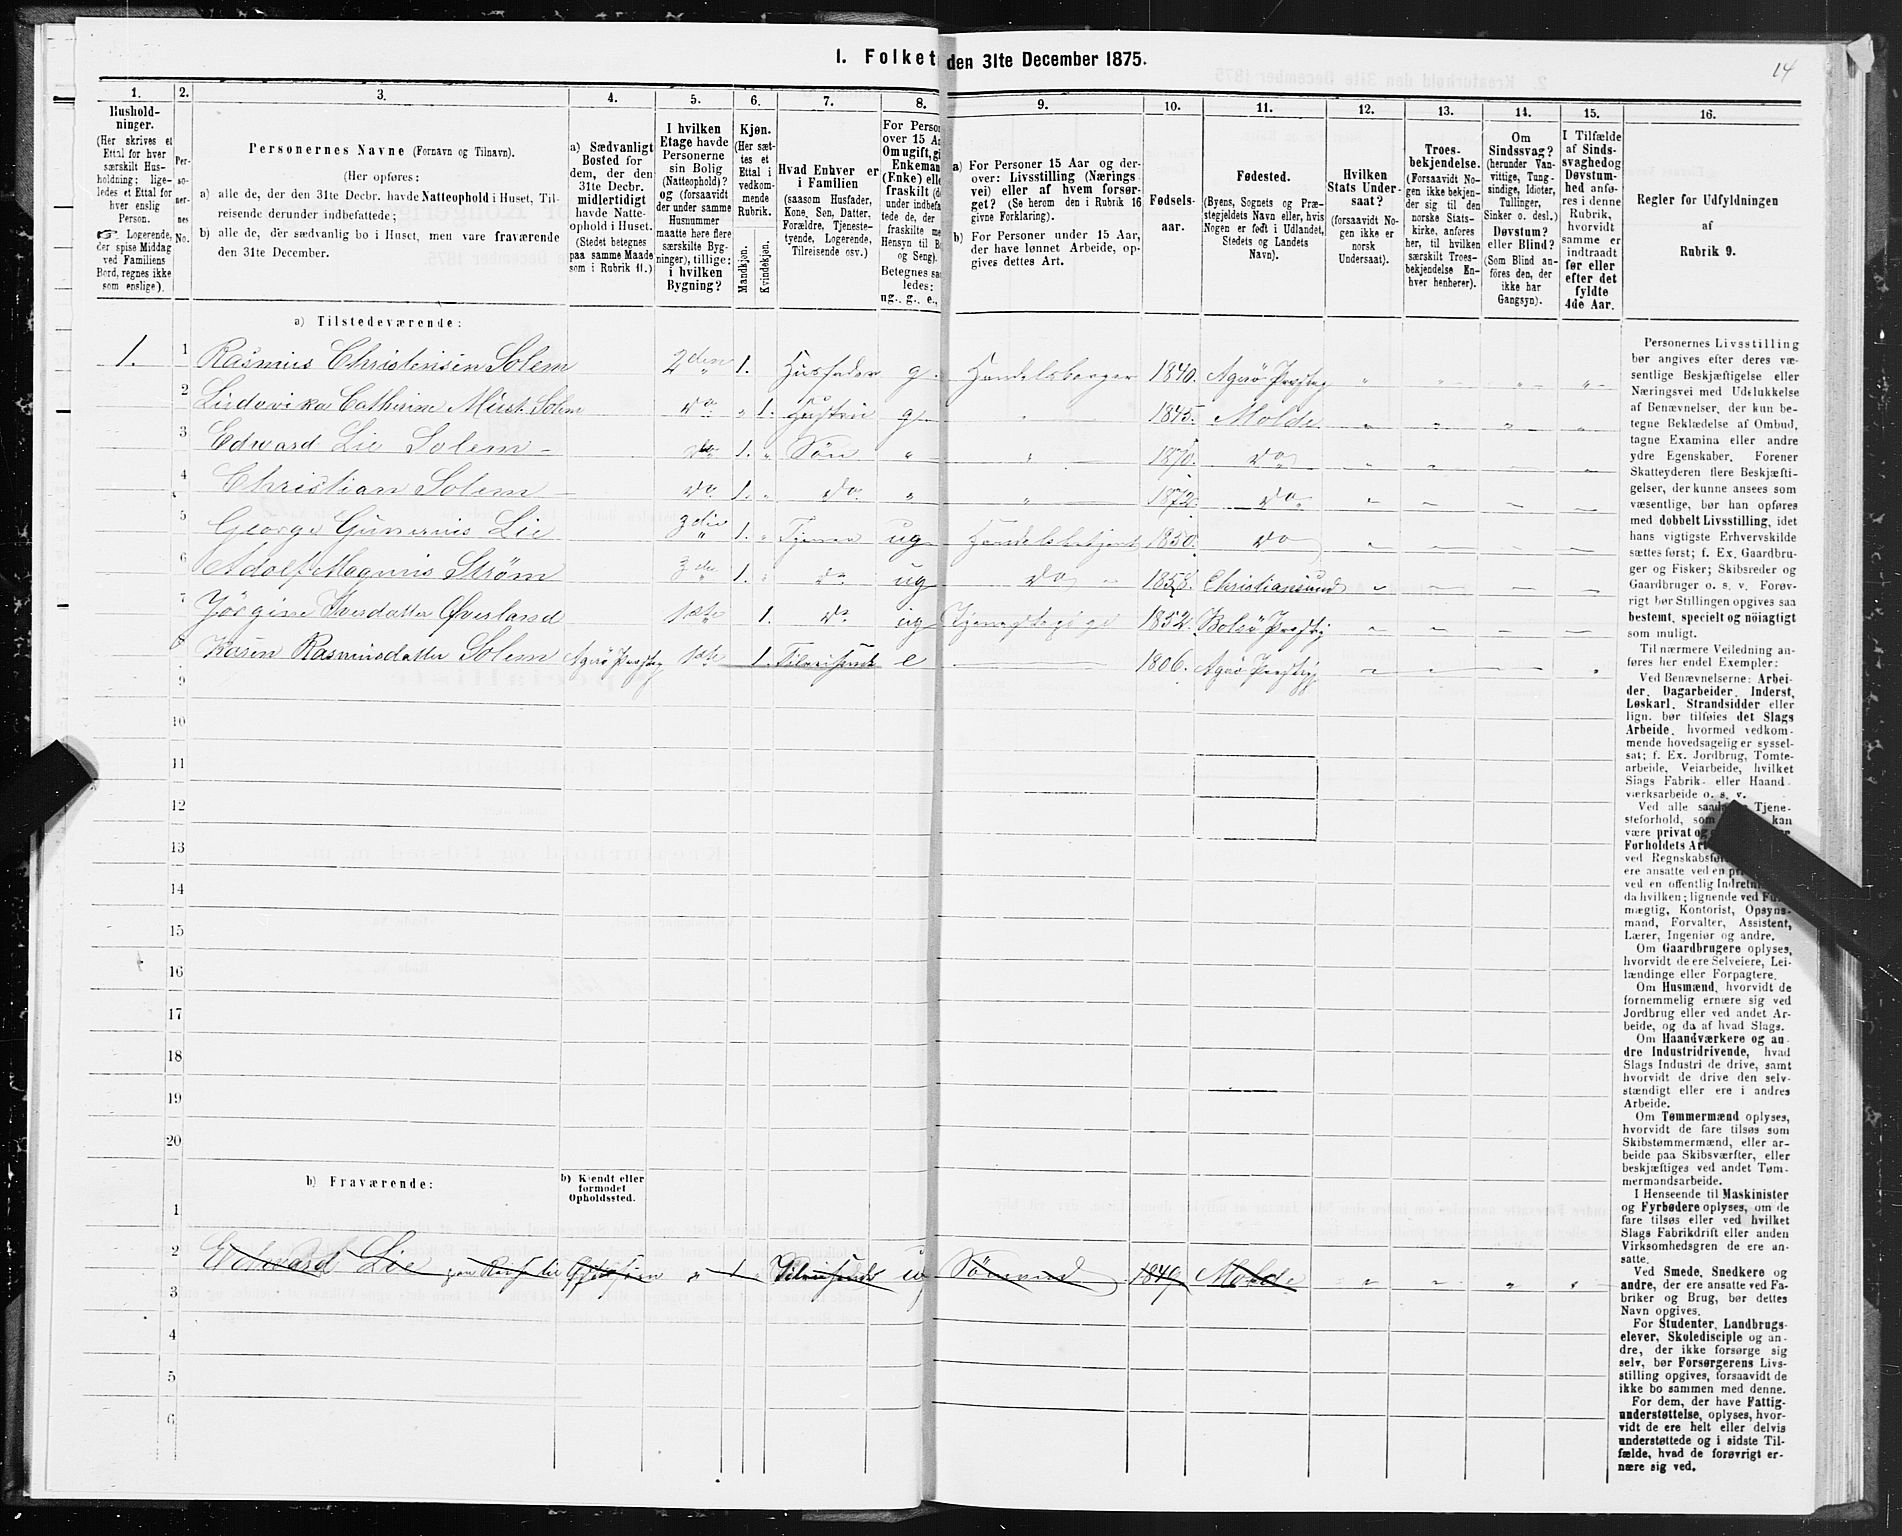 1. Folket den 31te December 1875.
14
1. 2. 3. 4. 5. 6. 7. 8. 9. 10. 11. 12. 13. 14. 15. 16.
Hushold-
ninger.
(Her skrives et
Ettal for hver
særskilt Hus-
holdning; lige-
ledes et Ettal for
hver enslig
Person.
☞ Logerende,
der spise Middag
ved Familiens
Bord, regnes ikke
som enslige).
Per-
so-
ner-
nes
No.
Personernes Navne (Fornavn og Tilnavn).
(Her opføres:
a) alle de, der den 31te Decbr. havde Natteophold i Huset, Til-
reisende derunder indbefattede;
b) alle de, der sædvanlig bo i Huset, men vare fraværende
den 31te December.
a) Sædvanligt
Bosted for
dem, der den
31te Decbr.
midlertidigt
havde Natte-
ophold i Huset.
(Stedet betegnes
paa samme Maade
som i Rubrik 11.)
I hvilken
Etage havde
Personerne
sin Bolig
(Natteophold)?
og (forsaavidt
der under samme
Husnummer
maatte here flere
særskilte Byg-
ninger), tillige:
i hvilken
Bygning?
Kjøn.
(Her sæt-
tes et
Ettal i
vedkom-
mende
Rubrik.
Mandkjøn.
Kvindekjøn.
Hvad Enhver er
i Familien
(saasom Husfader,
Kone, Søn, Datter,
Forældre, Tjeneste-
tyende, Logerende,
Tilreisende osv.)
For Person
over 15 A
Om ugift, gi
Enkeman
(Enke) elle
fraskilt (d
under indbefa
tede de, der
fraskilte me
Hensyn til B
og Seng).
Betegnes saa
ledes:
ug., g., e.,
a) For Personer 15 Aar og der-
over: Livsstilling (Nærings
vei) eller af hvem forsør-
get? (Se herom den i Rubrik 16
givne Forklaring).
b) For Personer under 15 Aar,
der have lønnet Arbeide, op-
gives dettes Art.
Fødsels-
aar.
Fødested.
(Byens, Sognets og Præ-
stegjeldets Navn eller, hvis
Nogen er født i Udlandet,
Stedets og Landets
Navn).
Hvilken
Stats Under-
saat?
(forsaavidt No-
gen ikke er
norsk
Undersaat).
Troes-
bekjendelse.
(Forsaavidt No-
gen ikke bekjen-
der sig til den
norske Stats-
kirke, anføres
her, til hvilken
særskilt Troes-
bekjendelse En-
hver henhører).
Om
Sindssvag?
(herunder Van-
vittige, Tung-
sindige, Idioter,
Tullinger,
Sinker o. desl.)
Døvstum?
eller Blind?
(Som Blind an-
føres den, der
ikke har
Gangsyn).
I Tilfælde
af Sinds-
svaghed og
Døvstum-
hed anfø-
res i denne
Rubrik,
hvorvidt
samme er
indtraadt
før eller
efter det
fyldte
4de Aar.
Regler for Udfyldningen
af
Rubrik 9.
a) Tilstedeværende:
1. 1 Rasmus Christensen Solem 2den 1. Husfader g. Handelsborger 1840. Agerö Præsteg
2 Ludovika Cathrine Solem do 1. Hustru g 1845. Molde
3 Edward Lie Solem do 1. Søn 1870. do
4 Christian Solem do 1. do 1872. do
5 George Gunerius Lie 3die 1. Tjener ug Handelsbetjent 1850. do
6 Adolf Magnus Strøm 3die 1. do ug do 1858. Christiansund
7 Jörgine Iversdatter Øverland 1ste 1. do ug Tjenestepige 1852. Bolsö Præsteg
8 Karen Rasmusdatter Solem Agerö Præsteg 1ste 1. Tilreisende e 1806. Agerö Præstegj
9
10
11
12
13
14
15
16
17
18
19
20
b) Fraværende:
b) Kjendt eller
formodet
Opholdssted.
1
2 Edward Lie 1 Tilreisende ug Sömand 1849 Molde
3
4
5
6
Personernes Livsstilling
bør angives efter deres væ-
sentlige Beskjæftigelse eller
Næringsvei med Udelukkelse
af Benævnelser, der kun be-
tegne Beklædelse af Ombud,
tagne Examina eller andre
ydre Egenskaber. Forener
Skatteyderen flere Beskjæfti-
gelser, der kunne ansees som
væsentlige, bør han opføres
med dobbelt Livsstilling, idet
hans vigtigste Erhvervskilde
sættes først; f. Ex. Gaardbru-
ger og Fisker; Skibsreder og
Gaardbruger o. s. v. Forøv-
rigt bør Stillingen opgives saa
bestemt, specielt og nöiagtigt
som muligt.
Til nærmere Veiledning an-
føres her endel Exempler:
Ved Benævnelserne: Arbei-
der, Dagarbeider, Inderst,
Løskarl, Strandsidder eller
lign. bør tilføies det Slags
Arbeide, hvormed vedkom-
mende hovedsagelig er syssel-
sat; f. Ex. Jordbrug, Tomte-
arbeide, Veiarbeide, hvilket
Slags Fabrik- eller Haand-
værksarbeide o. s. v.
Ved alle saad Tjene-
steforhold, som kan
være privat og
Forholdets Art
ved Regnskabsfør
ere ansatte ved en pri
ved en offentlig Indretn
da hvilken; lignende ved Fuld-
mægtig, Kontorist, Opsyns-
mand, Forvalter, Assistent,
Lærer, Ingeniør og andre.
Om Gaardbrugere oplyses,
hvorvidt de ere Selveiere, Lei-
lændinge eller Forpagtere.
Om Husmænd, hvorvidt de
fornemmelig ernære sig ved
Jordbrug eller ved andet Ar-
beide, og da af hvad Slags.
Om Haandværkere og an-
dre Industridrivende, hvad
Slags Industri de drive, samt
hvorvidt de drive den selv-
stændigt eller ere i andres
Arbeide.
Om Tømmermænd oplyses,
hvorvidt de fare tilsøs som
Skibstømmermænd, eller ar-
beide paa Skibsværfter, eller
beskjæftiges ved andet Tøm-
mermandsarbeide.
I Henseende til Maskinister
og Fyrbødere oplyses, om de
fare tilsøs eller ved hvilket
Slags Fabrikdrift eller anden
Virksomhedsgren de ere an-
satte.
Ved Smede, Snedkere og
andre, der ere ansatte ved Fa-
briker og Brug, bør dettes
Navn opgives.
For Studenter, Landbrugs-
elever, Skoledisciple og an-
dre, der ikke forsørge sig
selv, bør Forsørgerens Livs-
stilling opgives, forsaavidt de
ikke bo sammen med denne.
For dem, der have Fattig-
understøttelse, oplyses, hvor-
vidt de ere helt eller delvis
understøttede og i sidste Til-
fælde, hvad de forøvrigt er-
nære sig ved.